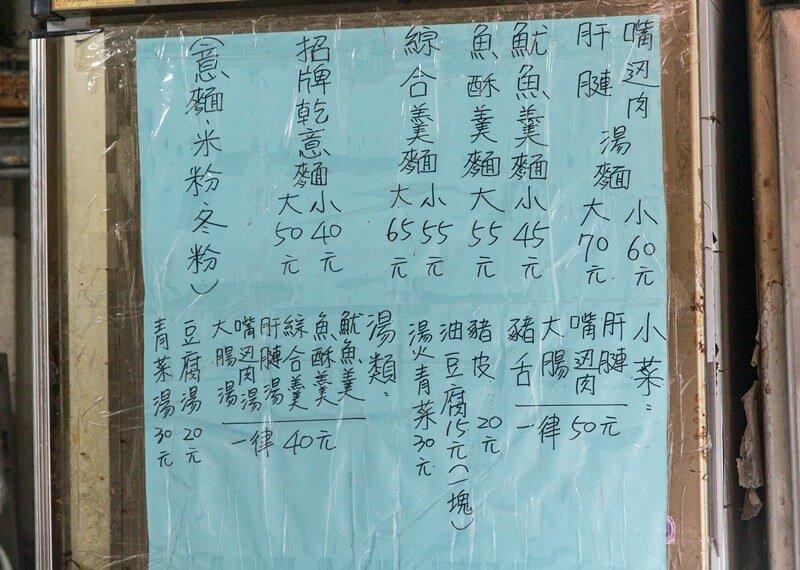 嘴边肉
肝腱
湯麵
小60元
大70元
魷魚羹麵
魚酥羹麵
小45元
大55元
綜合羹麵
小55元
大65元
招牌乾意麵
小40元
大50元
（意麵、米粉、冬粉）
小菜：
肝腱
嘴边肉
大腸
豬舌
一律50元
豬皮 20元
油豆腐15元（一塊）
燙青菜30元
湯類：
魷魚羹
魚酥羹
綜合羹
肝腱湯
嘴边肉湯
大腸湯
一律40元
豆腐湯20元
青菜湯30元